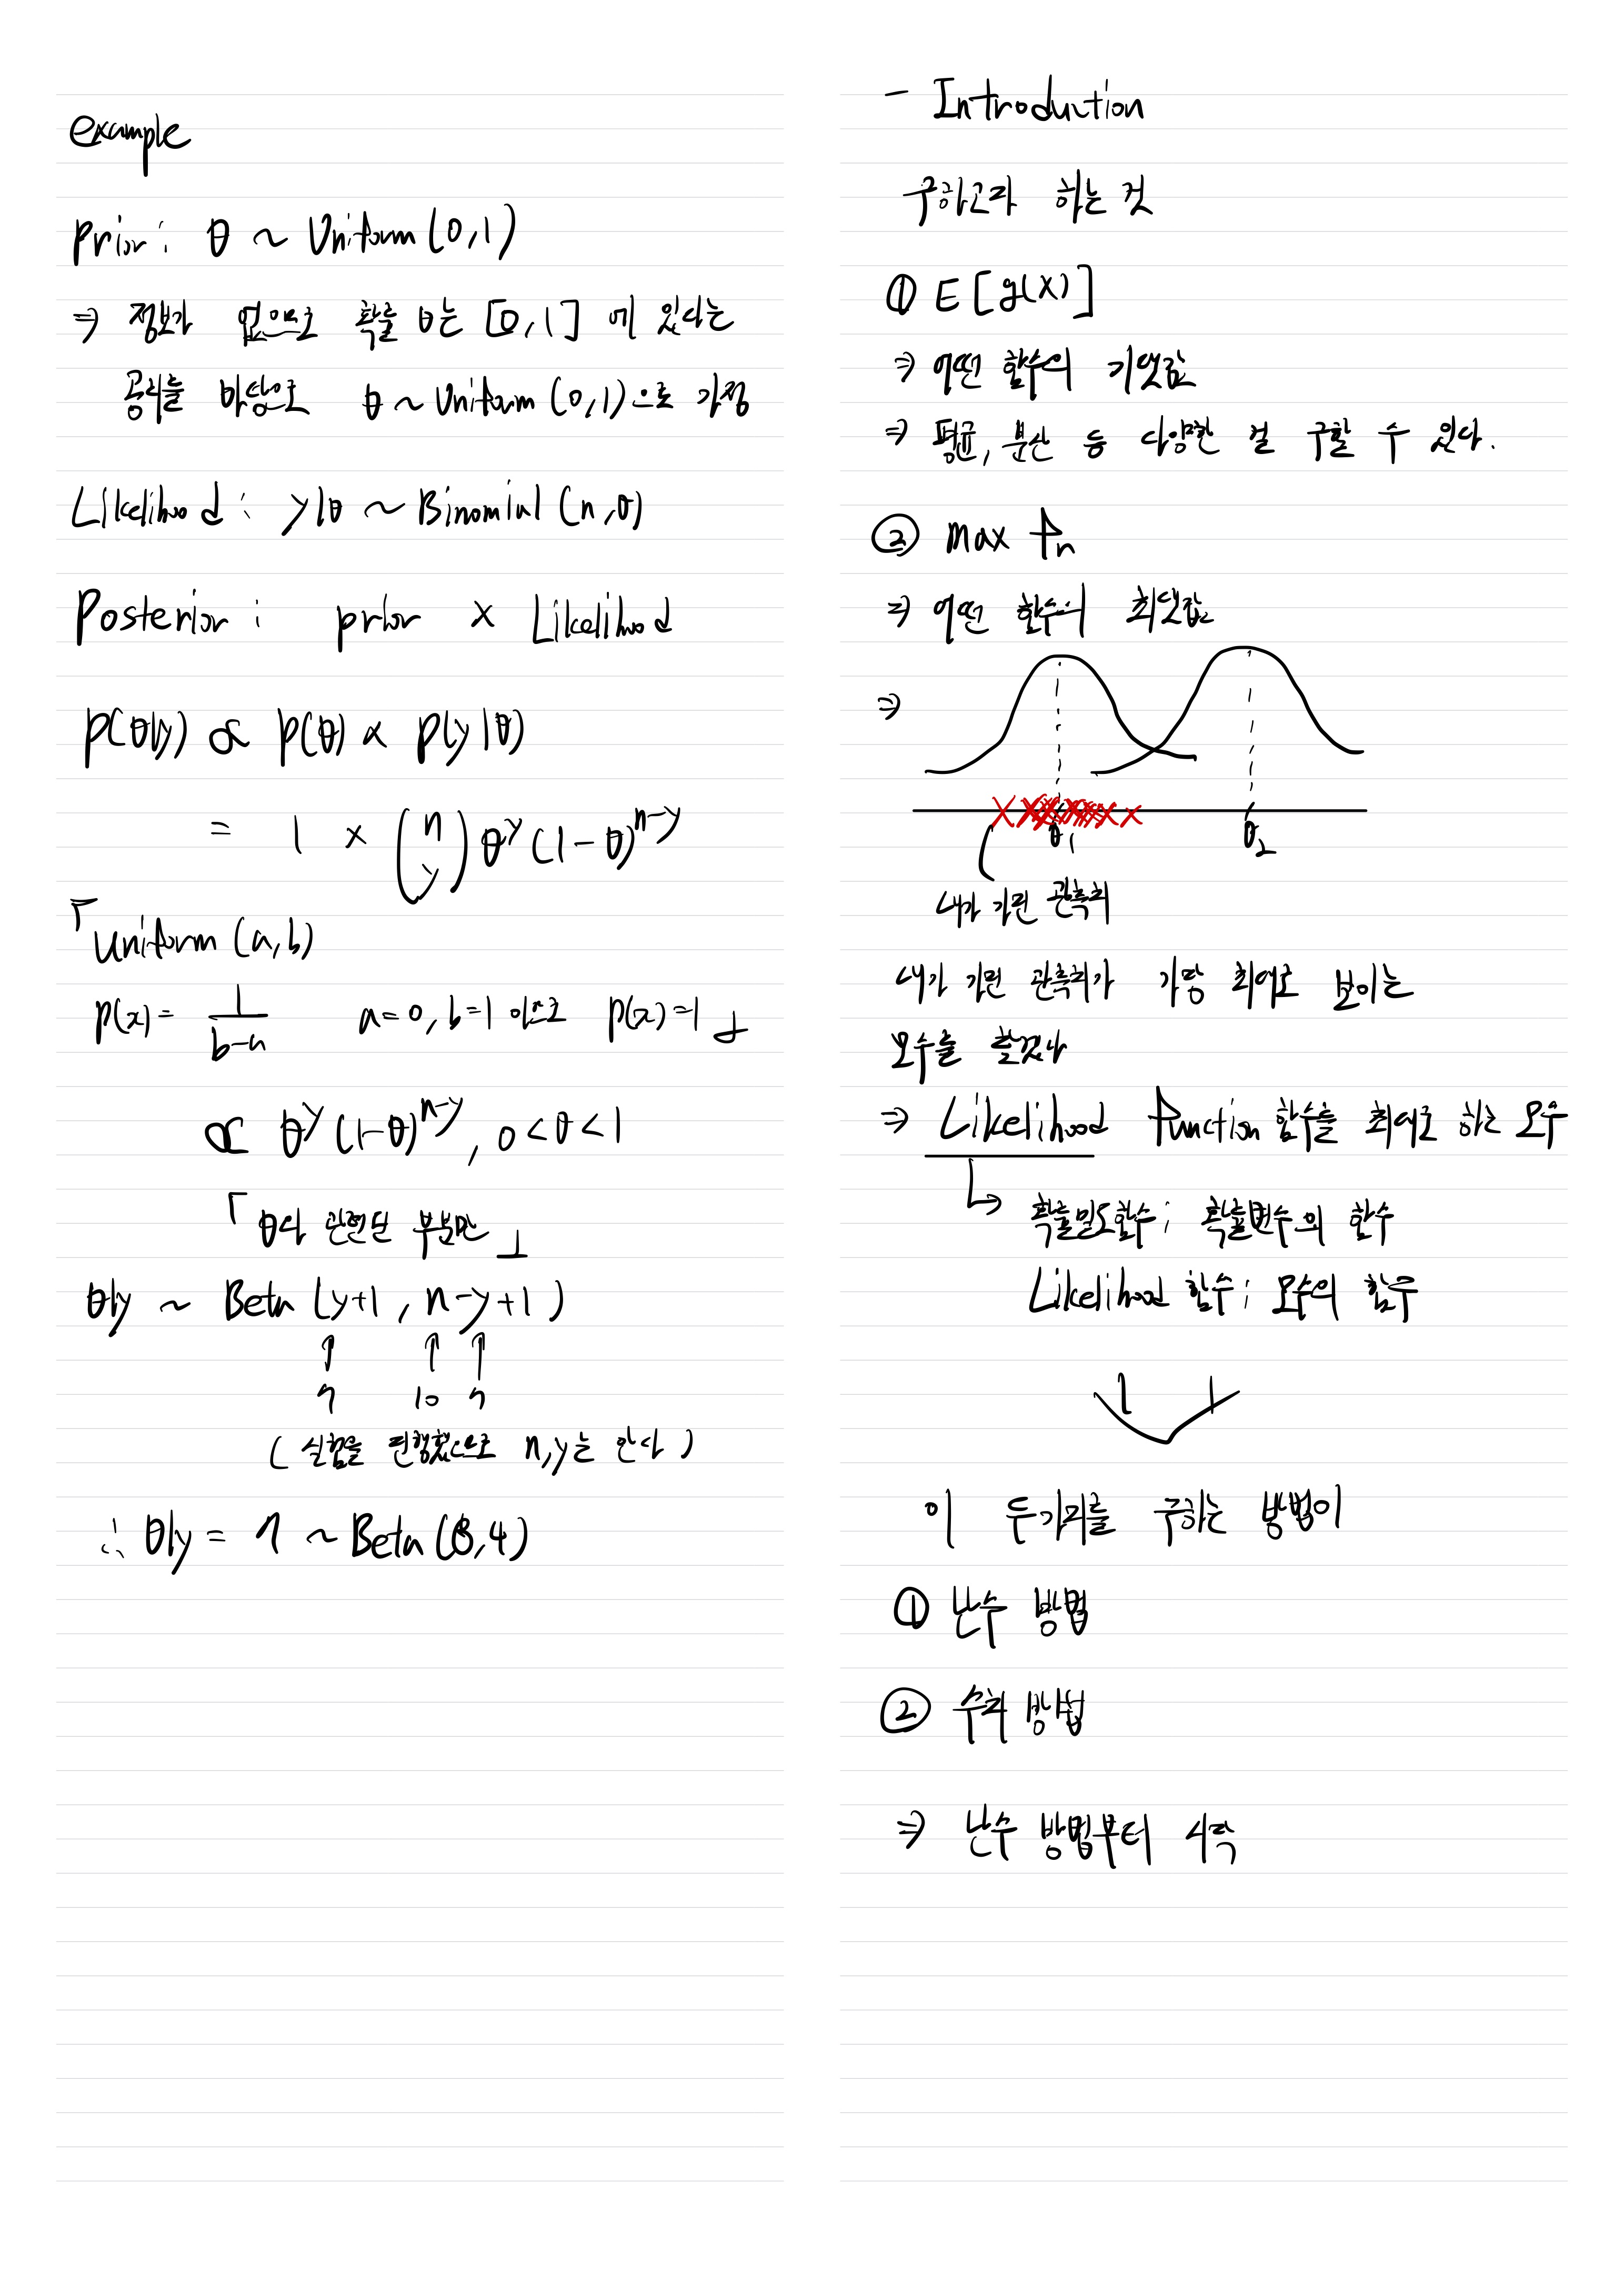 example
prior : θ ~ Uniform (0,1)
⇒ 정보가 없으므로 확률 θ는 [0,1] 에 있다는
공리를 바탕으로 θ ~ Uniform (0,1)으로 가정
Likelihood : y|θ ~ Binomial (n,θ)
Posterior : prior × Likelihood
p(θ|y) ∝ p(θ) × p(y|θ)
= 1 × (n y) θ^y (1-θ)^n-y
「Uniform (a,b)
p(x) = 1/b-a a=0, b=1 이므로 p(x)=1」
∝ θ^y (1-θ)^n-y, 0<θ<1
「θ와 관련된 부분만」
θ|y ~ Beta (y+1, n-y+1)
↑ ↑ ↑
7 10 7
( 실험을 진행했으므로 n,y는 안다 )
∴ θ|y = 7 ~ Beta (8,4)
- Introduction
구하고자 하는 것
① E[g(X)]
⇒ 어떤 함수의 기댓값
⇒ 평균, 분산 등 다양한 걸 구할 수 있다.
② max fn
⇒ 어떤 함수의 최댓값
⇒
θ1 θ2
내가 가진 관측치
내가 가진 관측치가 가장 최대로 보이는
모수를 찾겠다
⇒ Likelihood function 함수를 최대로 하는 모수
↳ 확률밀도함수 ; 확률변수의 함수
Likelihood 함수 ; 모수의 함수
이 두가지를 구하는 방법이
① 난수 방법
② 수치 방법
⇒ 난수 방법부터 시작